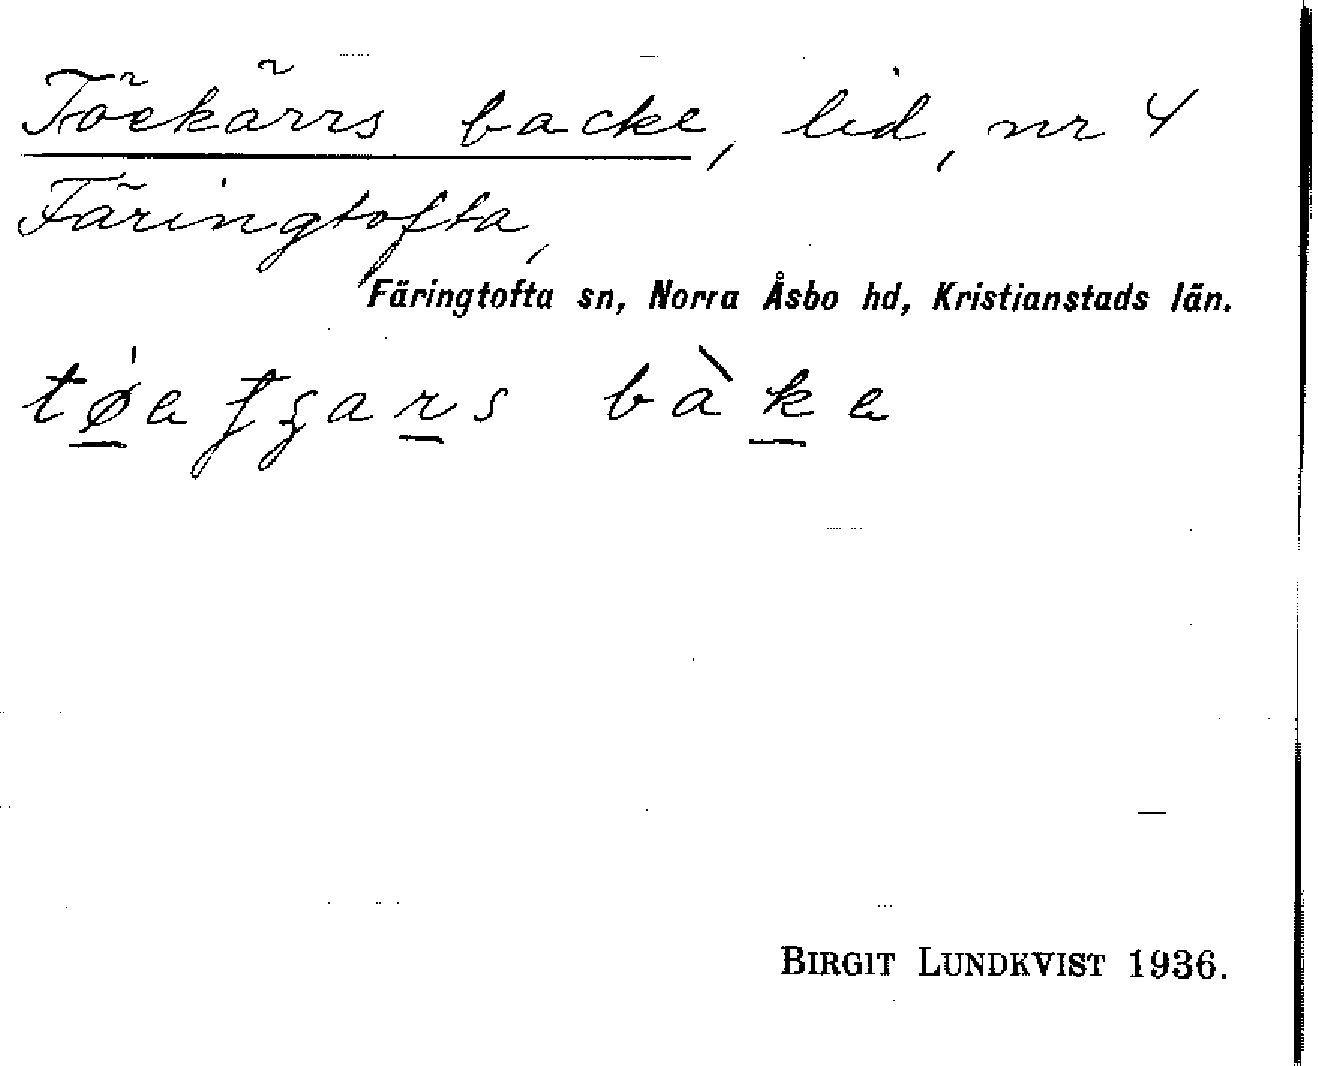 Töekärrs backe, lid, nr 4
Färingtofta,
Färingtofta sn, Norra Åsbo hd, Kristianstads län.
bàke
BIRGIT LUNDKVIST 1936.